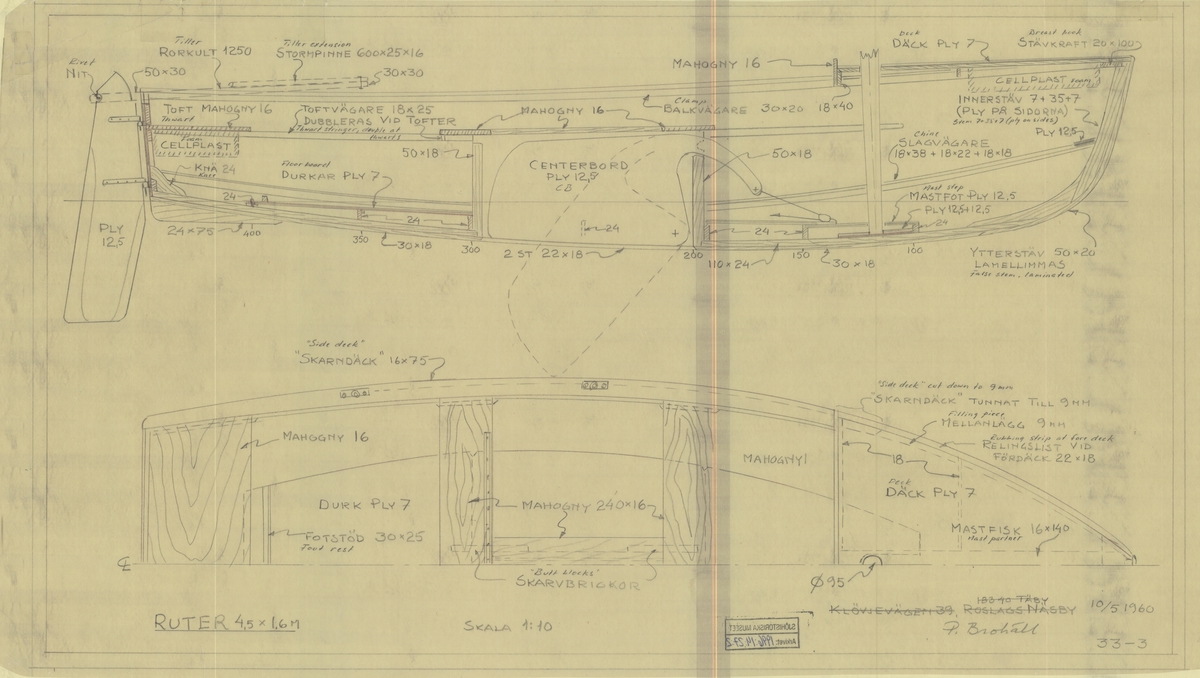 Tiller
RORKULT 1250
Tiller extension
STORMPINNE 600×25×16
Rivet
NIT
50×30
30×30
MAHOGNY 16
Deck
DÄCK PLY 7
Breast hook
STÄVKRAFT 20×100
TOFT MAHOGNY 16
Thwart
TOFTVÄGARE 18×25
DUBBLERAS VID TOFTER
Thwart stringer, double at
thwarts
MAHOGNY 16
Clamp
BALKVÄGARE 30×20
18×40
CELLPLAST
Foam
INNERSTÄV 7+35+7
(PLY PÅ SIDORNA)
Stem 7+35+7 (ply on sides)
PLY 12,5
Foam
CELLPLAST
50×18
CENTERBORD
PLY 12,5
CB
50×18
Chine
SLAGVÄGARE
18×38 + 18×22 + 18×18
KNÄ 24
Knee
Floor board
DURKAR PLY 7
Mast step
MASTFOT PLY 12,5
PLY 12,5+12,5
24
24
24
24
24
24
PLY
12,5
24×75
400
350
30×18
300
2 ST 22×18
200
110×24
150
30×18
100
YTTERSTÄV 50×20
LAMELLIMMAS
False stem, laminated
"Side deck"
"SKARNDÄCK" 16×75
"Side deck" cut down to 9 mm
"SKARNDÄCK" TUNNAT TILL 9 MM
Filling piece
MELLANLÄGG 9 MM
Rubbing strip at fore deck
RELINGSLIST VID
FÖRDÄCK 22×18
MAHOGNY 16
MAHOGNY
18
Deck
DÄCK PLY 7
DURK PLY 7
MAHOGNY 240×16
FOTSTÖD 30×25
Foot rest
MASTFISK 16×140
Mast partner
"Butt blocks"
SKARVBRICKOR
Ø95
RUTER 4,5 × 1,6 M
SKALA 1:10
183 40 TÄBY
KLÖVJEVÄGEN 39, ROSLAGS NÄSBY
10/5 1960
P. Brohäll
33-3
SJÖHISTORISKA MUSEET